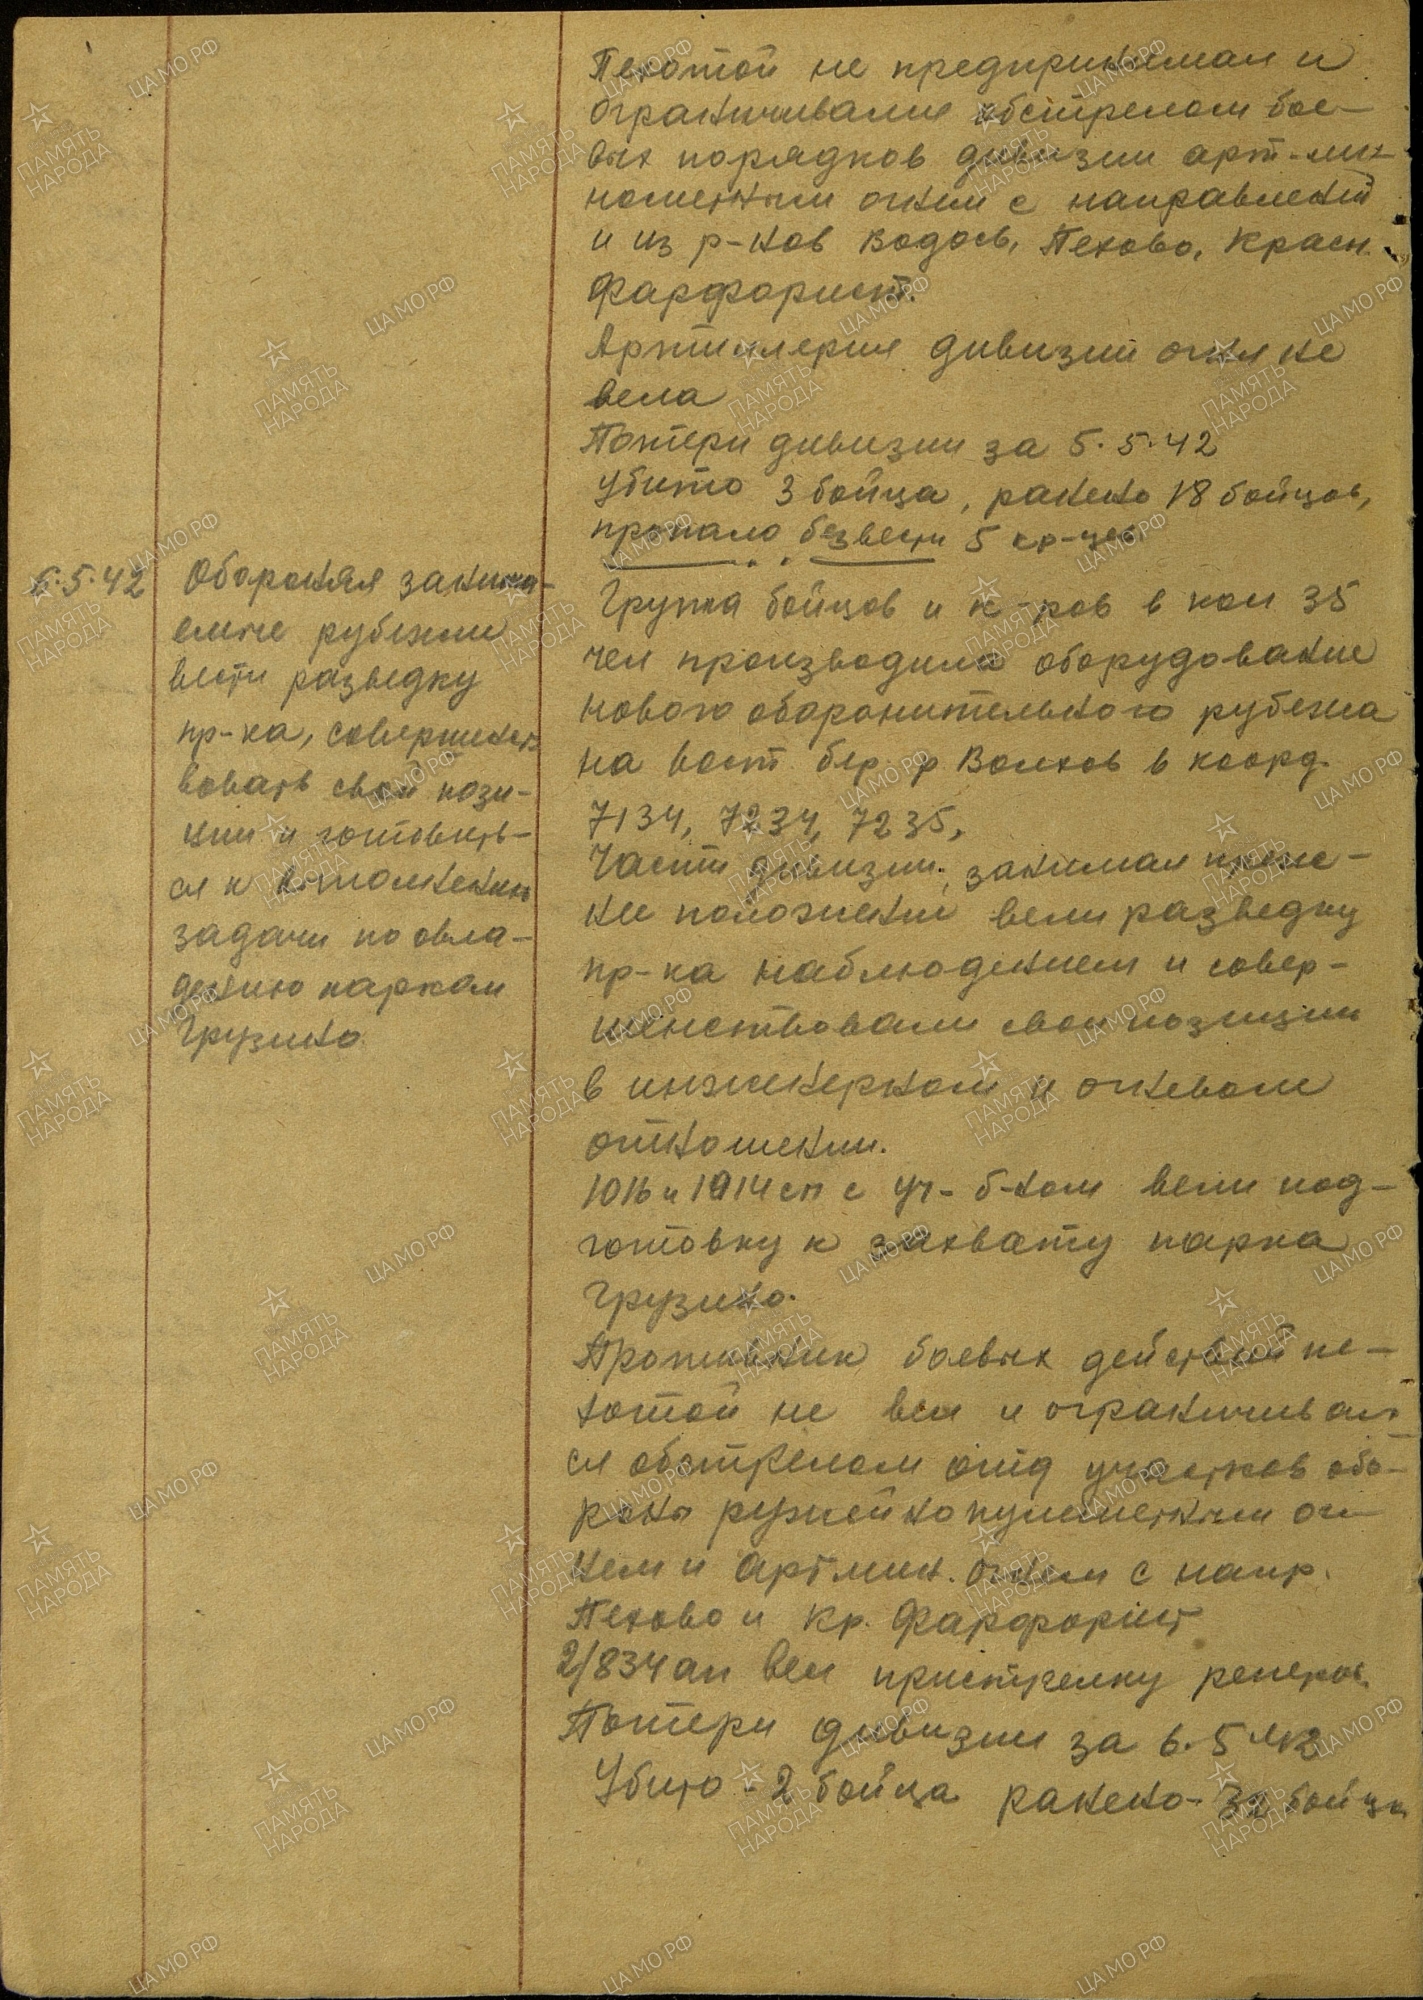 Пехотой не предпринимал и
ограничивался обстрелом бое-
вых порядков дивизии арт-ми-
нометным огнем с направлений
и из р-нов Водось, Пехово, Красн.
Фарфорист.
Артиллерия дивизии огня не
вела
Потери дивизии за 5.5.42
Убито 3 бойца, ранено 18 бойцов,
пропало без вести 5 кр-цев
6.5.42
Обороняя занима-
емые рубежи
вести разведку
пр-ка, совершенст
вовать свои пози-
ции и готовить-
ся к выполнению
задачи по овла-
дению парком
Грузино
Группа бойцов и к-ров в кол 35
чел производила оборудование
нового оборонительного рубежа
на вост бер. р Волхов в коорд.
7134, 7234, 7235,
Части дивизии, занимая преж-
нее положение вели разведку
пр-ка наблюдением и совер-
шенствовали свои позиции
в инженерном и огневом
отношении.
1016 и 1914 сп с уч-б-ном вели под-
готовку к захвату парка
Грузино.
Противник боевых действий пе-
хотой не вел и ограничивал
ся обстрелом отд участков обо-
роны ружейно пулеметным ог-
нем и арт мин. огнем с напр.
Пехово и Кр. Фарфорист
2/834 ап вел пристрелку реперов.
Потери дивизии за 6.5.42
Убито - 2 бойца ранено - 32 бойца
ПАМЯТЬ НАРОДА
ЦАМО.РФ